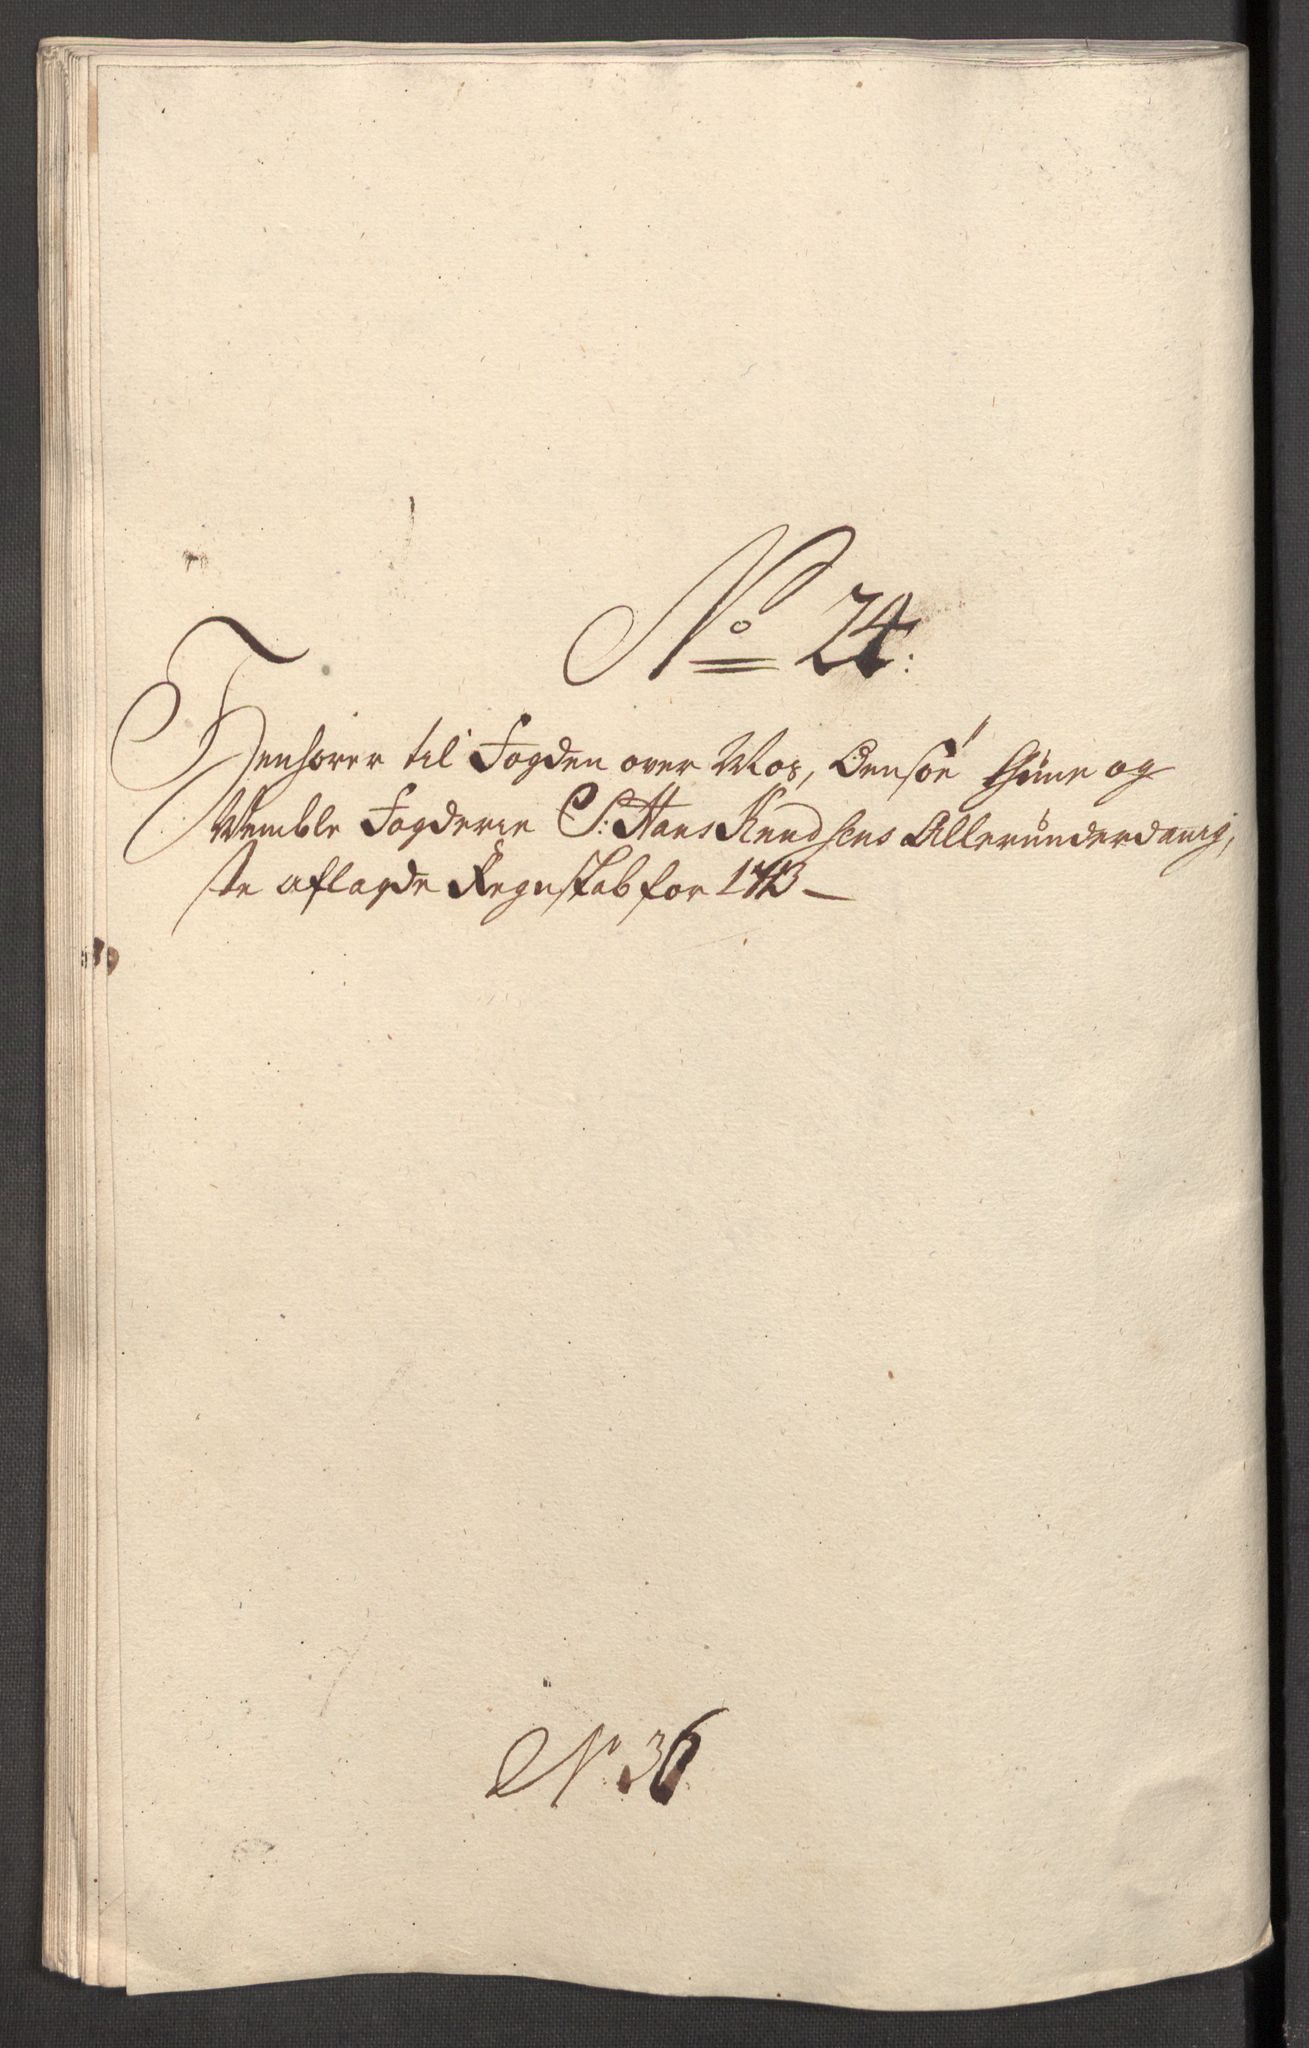 No 24:
Henhører til Fogden over Mos, Onsøe Thune og
Wemble Fogderie Sr: Hans Knudsens Allerunderdanig,
ste aflagde Regnskab for 1713
No 36